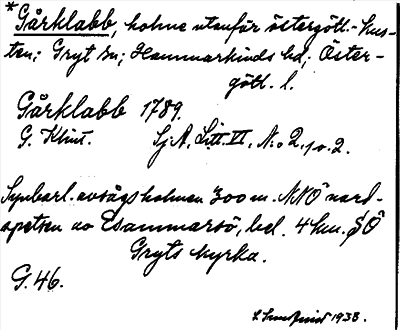 *Gårklabb, holme utanför östergött.-kus-
ten; Gryt sn; Hammarkinds hd; Öster-
götl. l.
Gårklabb 1789.
G. Klint. Sj. A, Litt. VI, N:o 2,
Synbarl. avsågs holmen 300 m. NNÖ nord-
spetsen av Esammarsö, bel. 4 km. SÖ
Gryts kyrka.
G. 46.
1938.